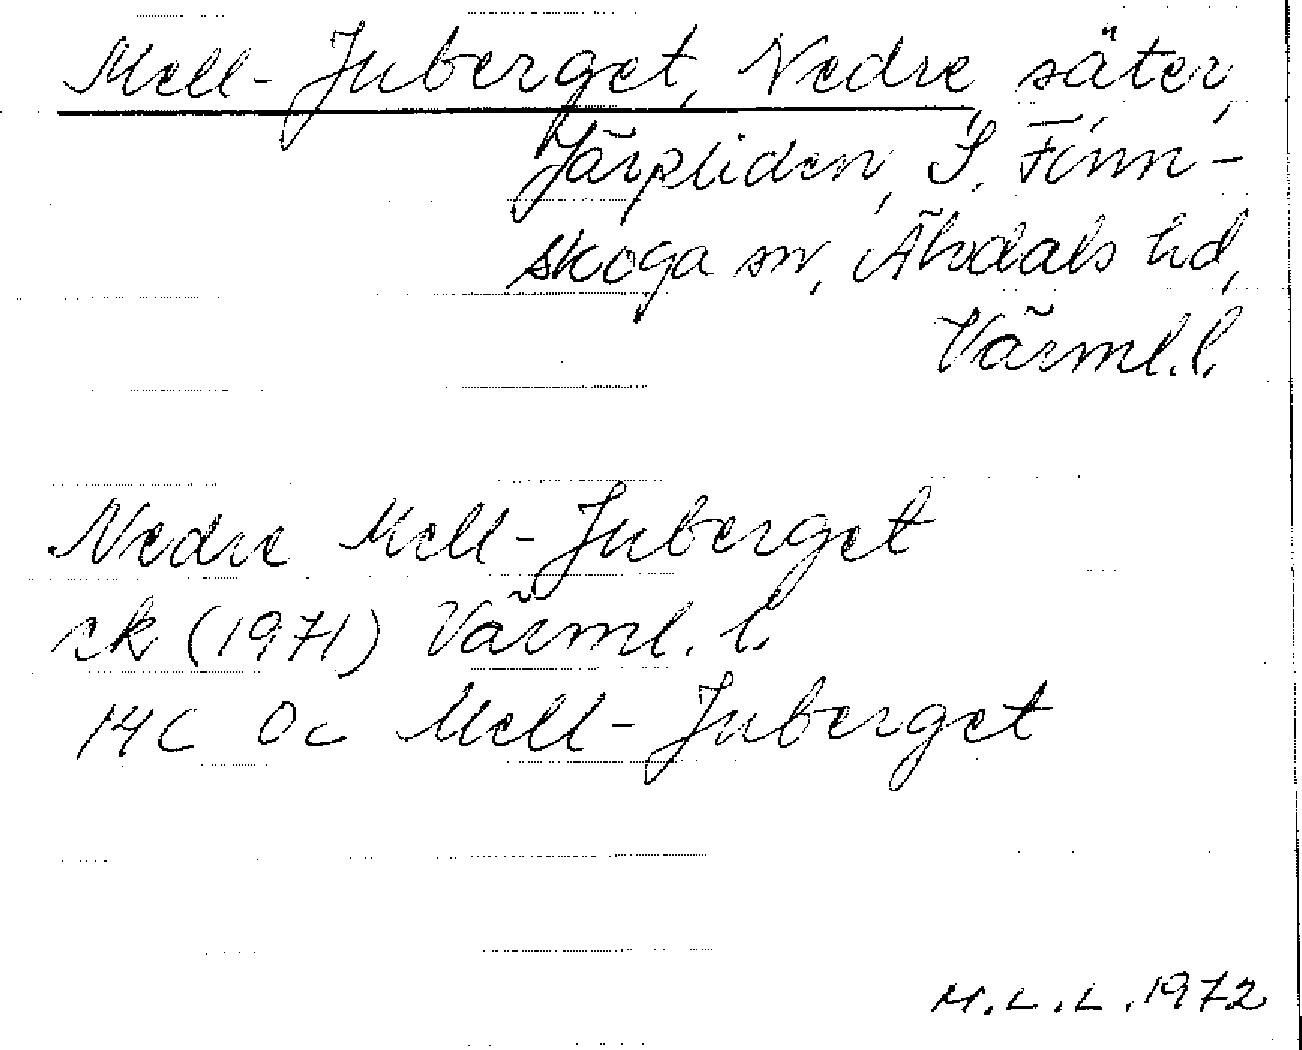 Mell-Juberget, Nedre, säter,
Järpliden, S. Finn-
skoga sn, Älvdals hd,
Värml. l.
Nedre Mell-Juberget
ek (1971) Värml. l.
14C 0c Mell-Juberget
M.L.L. 1972